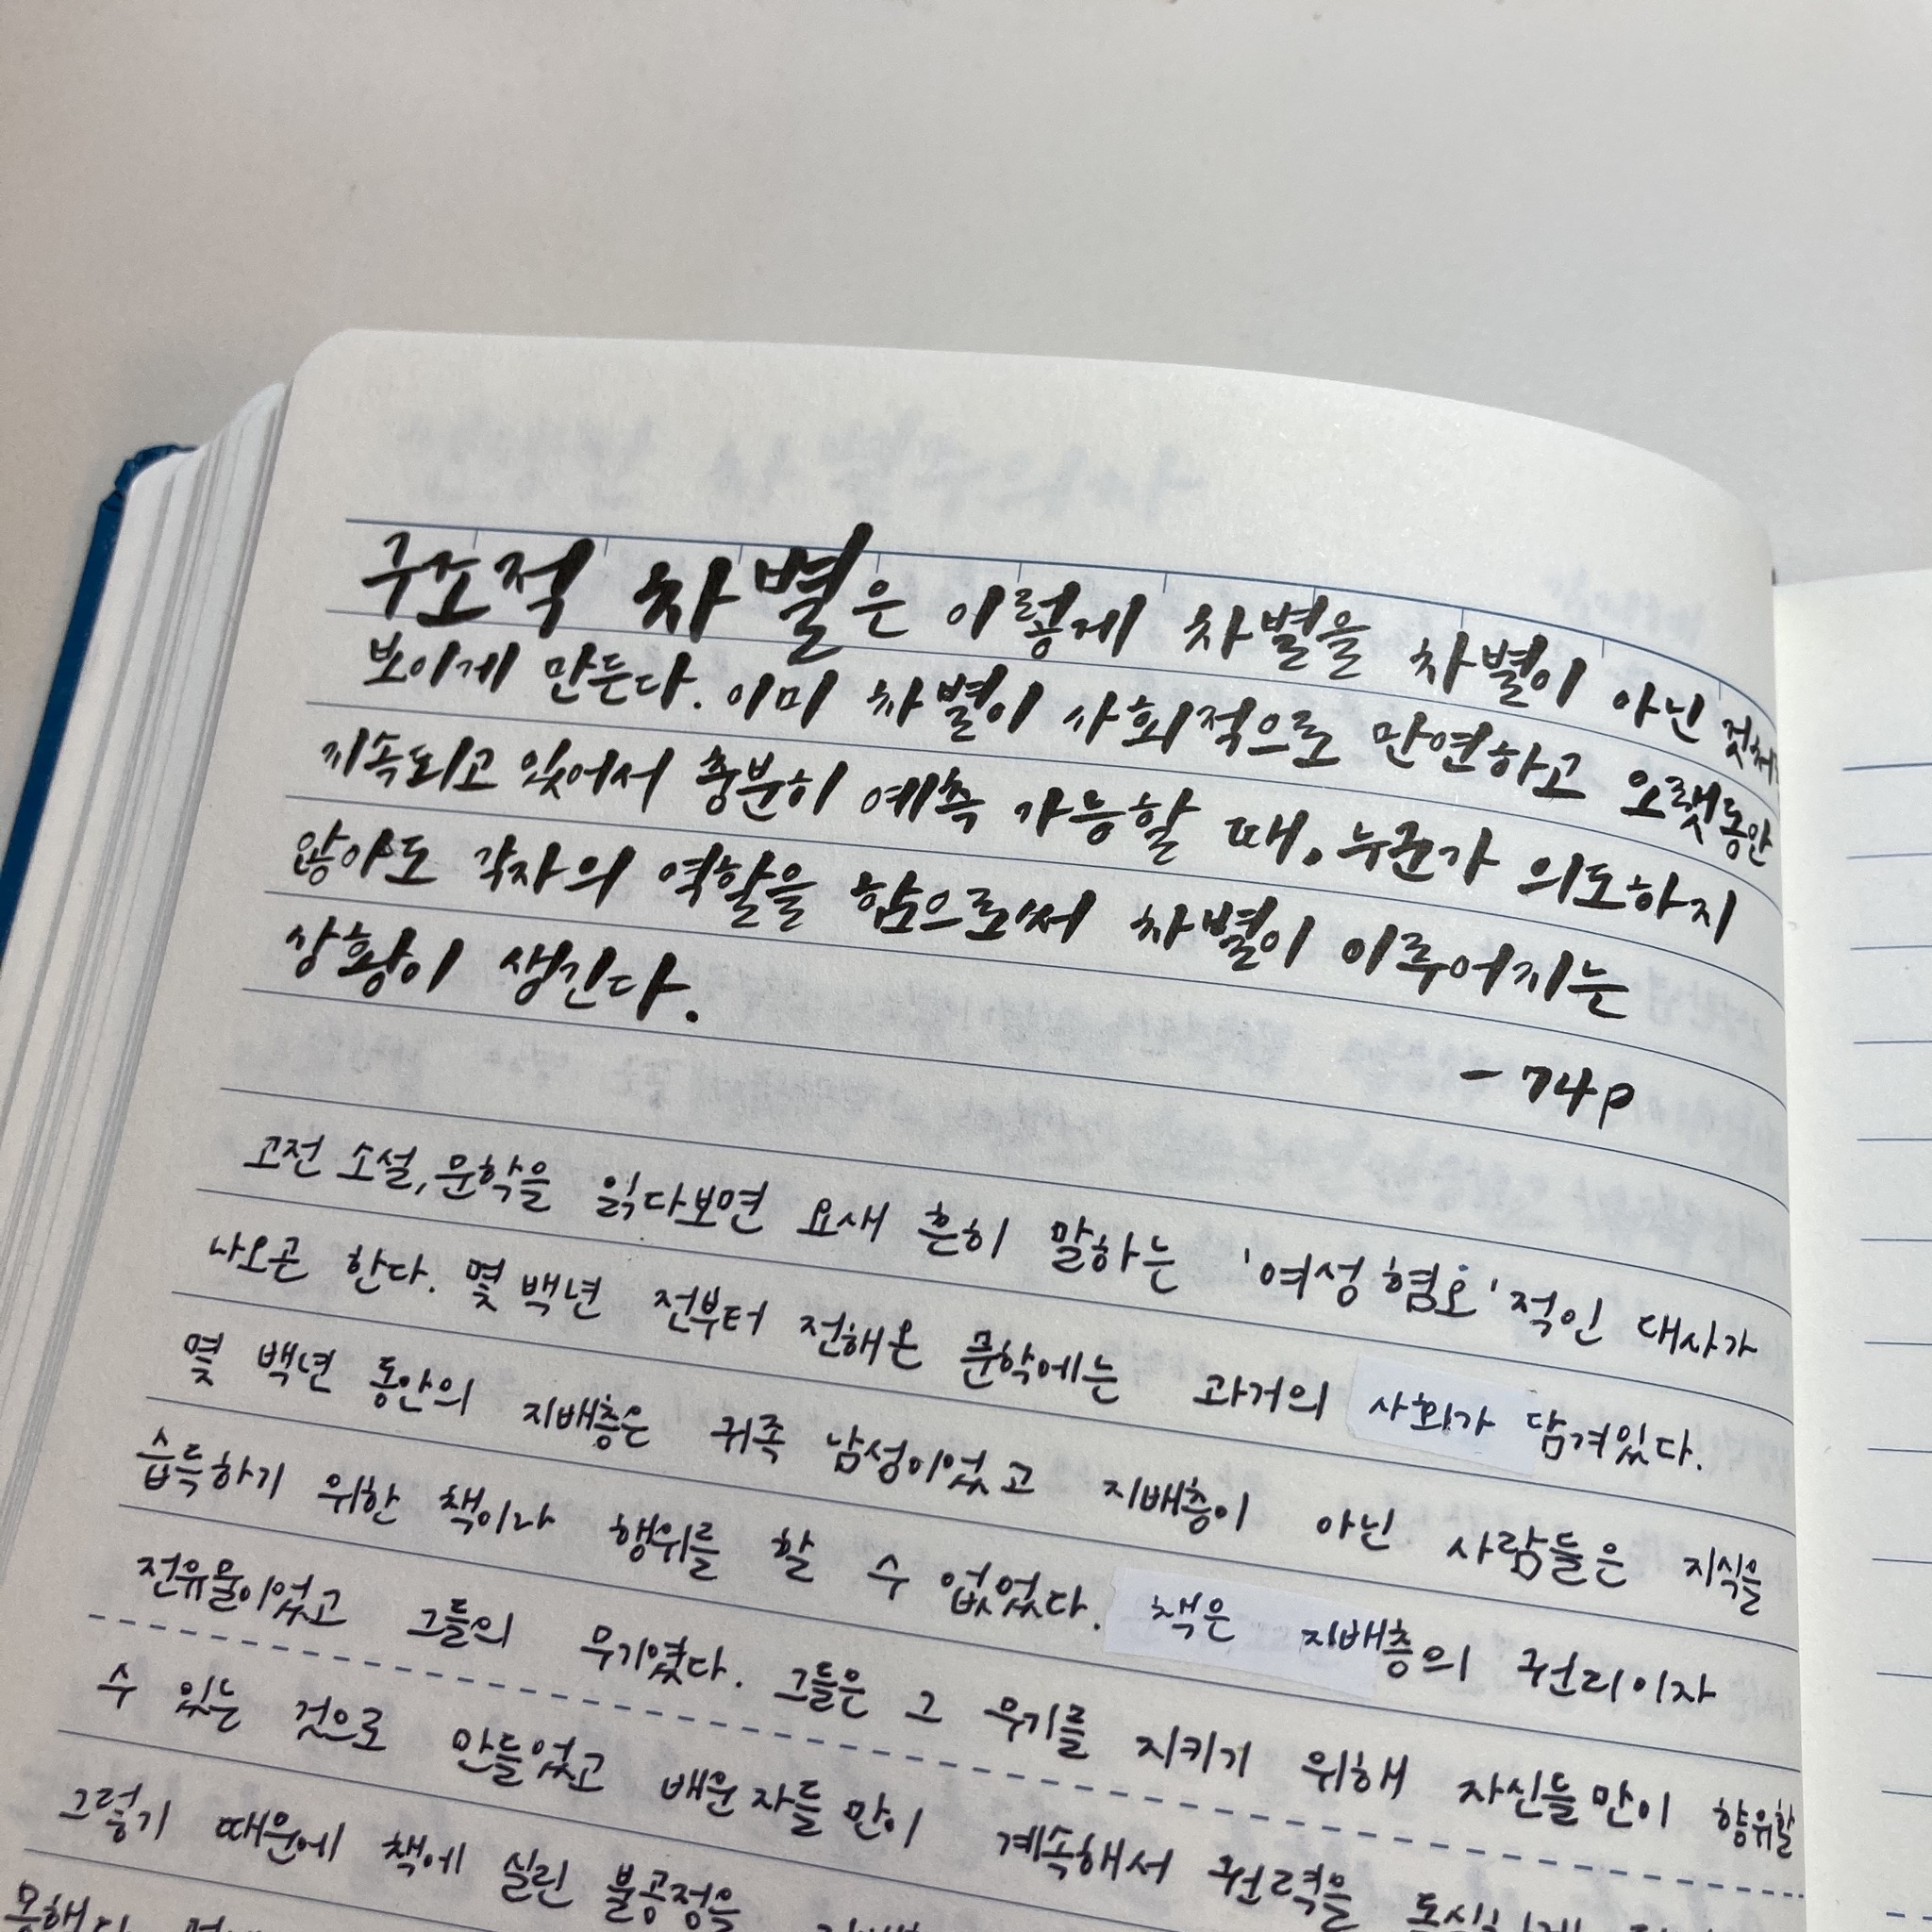 구조적 차별은 이렇게 차별을 차별이 아닌 것처럼
보이게 만든다. 이미 차별이 사회적으로 만연하고 오랫동안
지속되고 있어서 충분히 예측 가능할 때, 누군가 의도하지
않아도 각자의 역할을 함으로써 차별이 이루어지는
상황이 생긴다.
- 74p
고전 소설, 문학을 읽다보면 요새 흔히 말하는 '여성 혐오'적인 대사가
나오곤 한다. 몇 백년 전부터 전해온 문학에는 과거의 사회가 담겨있다.
몇 백년 동안의 지배층은 귀족 남성이었고 지배층이 아닌 사람들은 지식을
습득하기 위한 책이나 행위를 할 수 없었다. 책은 지배층의 권리이자
전유물이었고 그들의 무기였다. 그들은 그 무기를 지키기 위해 자신들만이 향유할
수 있는 것으로 만들었고 배운 자들만이 계속해서 권력을
그렇기 때문에 책에 실린 불공정을